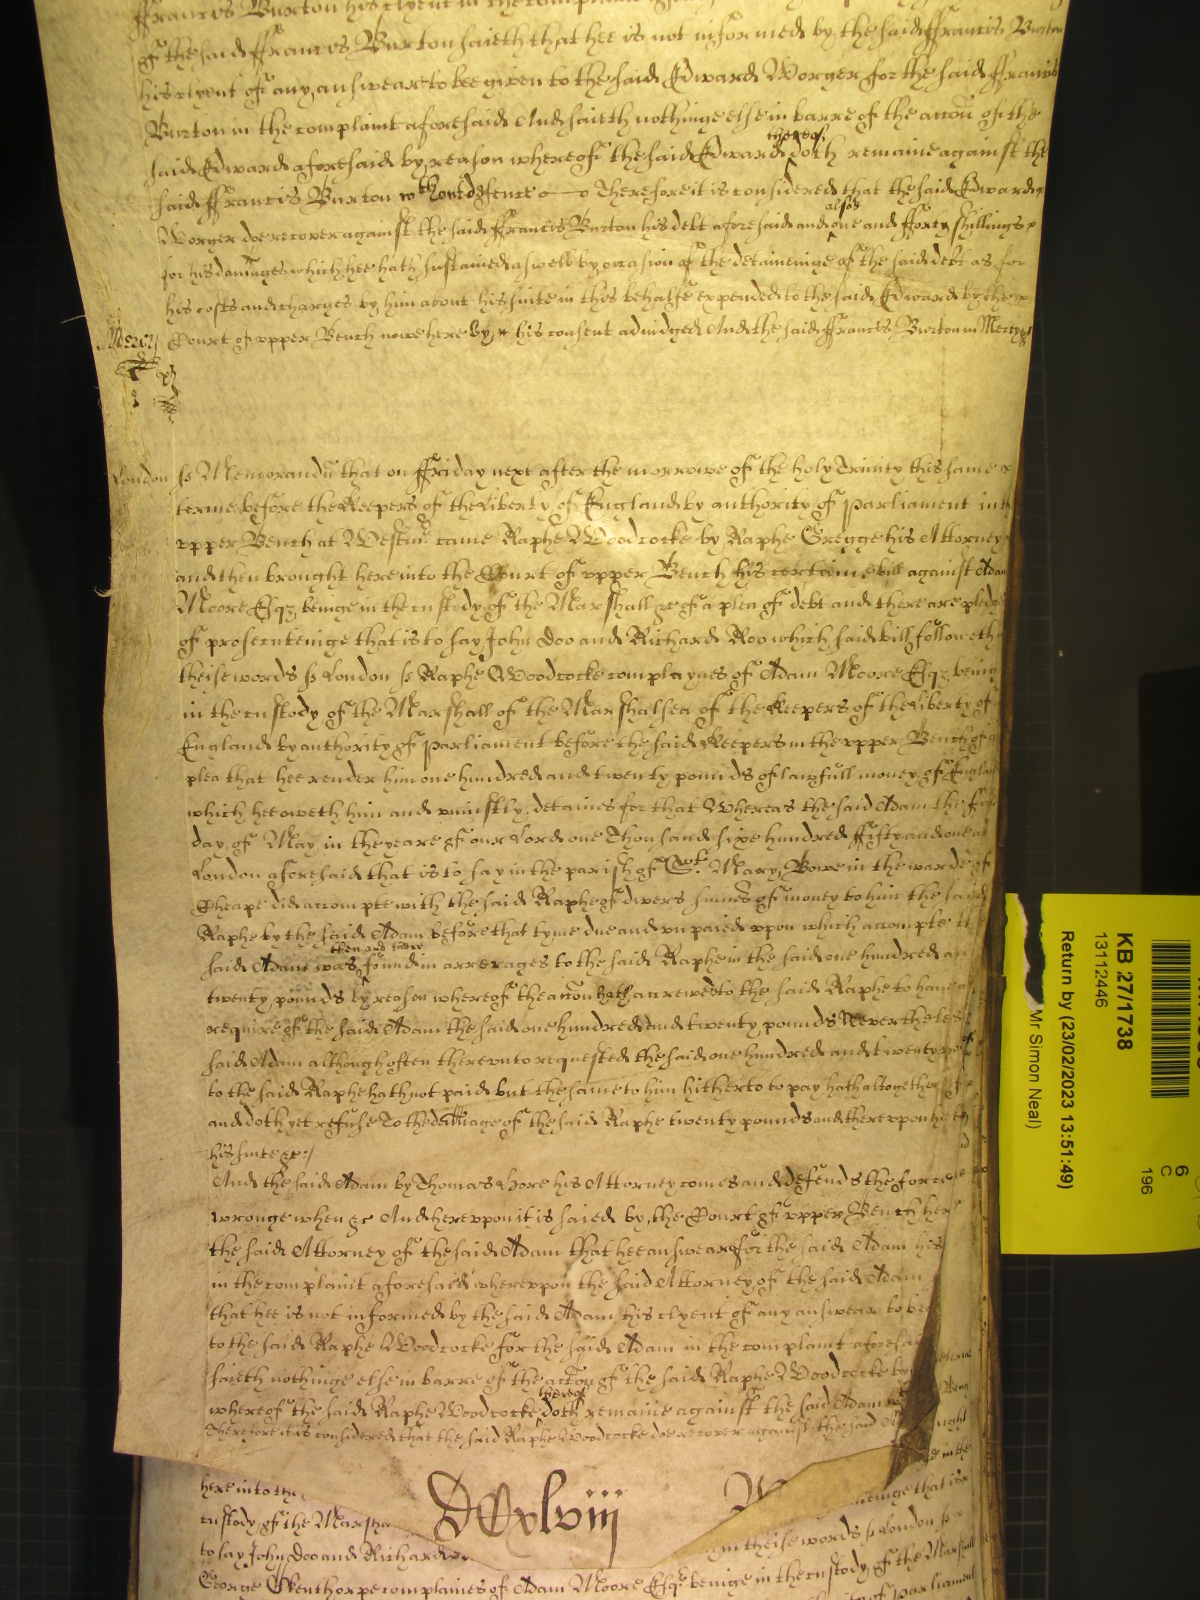 ffrancis Burton his clyent in the complaint
of the said ffrancis Burton saieth that hee is not informed by the said ffrancis Burton
his clyent of any answeare to bee given to the said Edward Worger for the said ffrancis
Burton in the complaint aforesaid And saieth nothinge else in barre of the accon of the
said Edward aforesaid by reason whereof the said Edward thereof doth remaine against the
said ffrancis Burton wthout defence Therefore it is considered that the said Edward
Worger doe recover against the said ffrancis Burton his debt aforesaid and also one and fforty shillings
for his damages which hee hath sustained aswell by occasion of the deteineinge of the said debt as for
his costs and charges by him about his suite in this behalfe expended to the said Edward by the
Mercy Court of upper Bench nowe here by his consent adiudged And the said ffrancis Burton in Mercy &c
London ss Memorandu that on ffriday next after the morrowe of the holy Trinity this same
terme before the Keepers of the Liberty of England by authority of Parliament in the
upper Bench at Westm came Raphe Woodcocke by Raphe Gregge his Attorney
and then brought here into the Court of upper Bench his certaine bill against Adam
Moore Esqz beinge in the custody of the Marshall &c of a plea of debt and there are pledges
of prosecuteinge that is to say John Doo and Richard Roo which said bill followeth
theise words ss London ss Raphe Woodcocke complaynes of Adam Moore Esqz beinge
in the custody of the Marshall of the Marshalsea of the Keepers of the Liberty of
England by authority of Parliament before the said Keepers in the upper Bench of a
plea that hee render him one hundred and twenty pounds of lawfull money of England
which hee oweth him and uniustly detaines for that Whereas the said Adam the first
day of May in the yeare of our Lord one Thousand sixe hundred ffifty and one at
London aforesaid that is to say in the parish of St. Mary Bowe in the warde of
Cheape did accompte with the said Raphe of divers summes of money to him the said
Raphe by the said Adam before that tyme due and unpaied upon which accompte the
said Adam was then and there found in arrerages to the said Raphe in the said one hundred and
twenty pounds by reason whereof the accon hath accrewed to the said Raphe to have and
require of the said Adam the said one hundred and twenty pounds Neverthelesse
said Adam although often thereunto requested the said one hundred and twenty
to the said Raphe hath not paid but the same to him hitherto to pay hath altogether
and doth yet refuse To the damage of the said Raphe twenty pounds and thereupon
his suite &c
And the said Adam by Thomas Hore his Attorney comes and defends the force
wronge when &c And hereupon it is saied by the Court of upper Bench here
the said Attorney of the said Adam that hee answeare for the said Adam his
in the complaint aforesaid whereupon the said Attorney of the said Adam
that hee is not informed by the said Adam his clyent of any answear to bee
to the said Raphe Woodcocke for the said Adam in the complaint aforesaid
saieth nothinge else in barre of the accon of the said Raphe Woodcocke by
whereof the said Raphe Woodcocke thereof doth remaine against the said Adam
Therefore it is considered that the said Raphe Woodcocke doe recover against the said
DCxlviii
here into the
custody of the Marsha
to say John Doo and Richard
in theise words ss London ss
George Skenthorpe complaines of Adam Moore Esqr beinge in the custody of the Marshall
of Parliament
KB 27/1738
13112446
Return by (23/02/2023 13:51:49)
Mr Simon Neal)
6
C
196